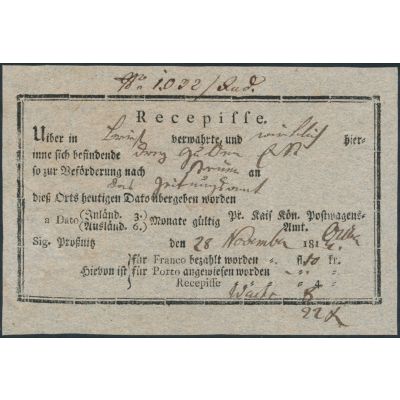 No. 1032/
Recepisse.
Uiber in verwahrte, und wirklich hier-
inne sich befindende
so zur Beförderung nach Brünn an
das Zeitungsamt
dieß Orts heutigen Dato übergeben worden
a Dato (Inländ. 3. Ausländ. 6.) Monate gültig Pr. Kais. Kön. Postwagens-
Amt.
Sig. Proßnitz den 28 November 181
Hievon ist
für Franco bezahlt worden „ fl 10 kr.
für Porto angewiesen worden „ „
Recepisse „ 4 „
8
22 x